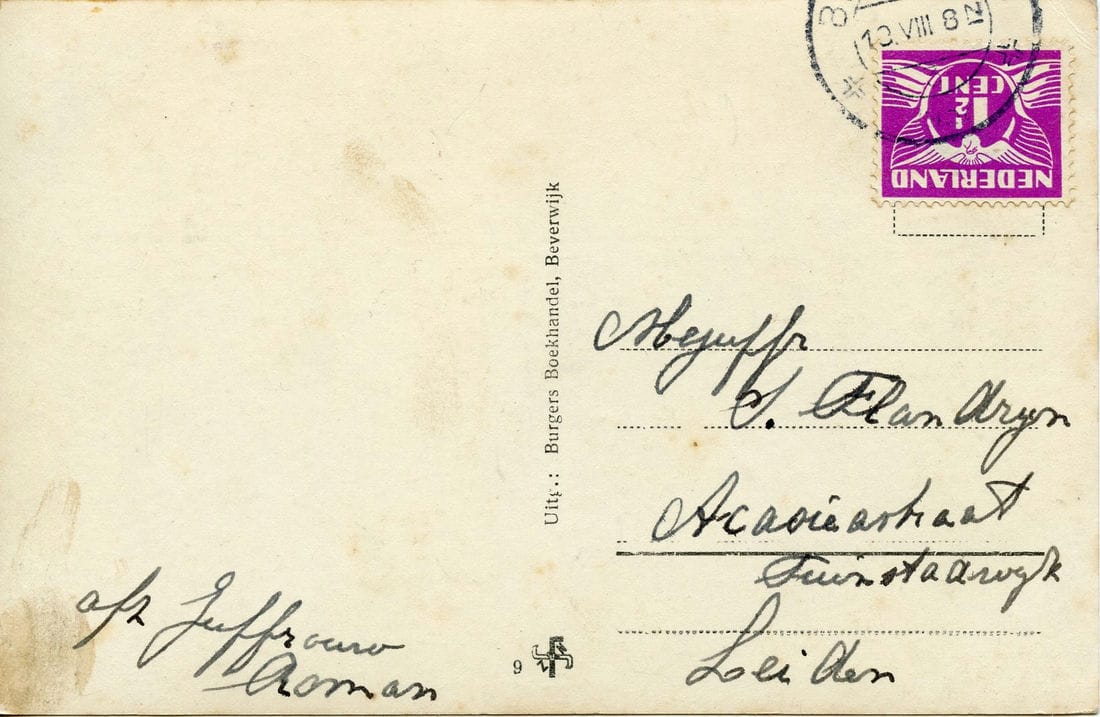 13.VIII 8 N
NEDERLAND
1½
CENT
Uitg.: Burgers Boekhandel, Beverwijk
Mejuffr
S. Flandryn
Acaciastraat
Tuinstadwyk
Leiden
afz Juffrouw
Roman
9